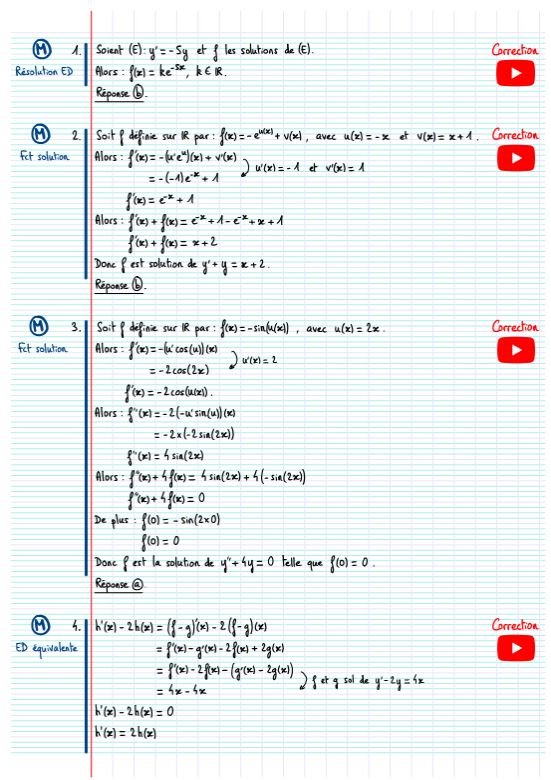 M 1. Soient (E): y' = -5y et f les solutions de (E). Correction
Résolution ED Alors : f(x) = ke^-5x, k ∈ ℝ.
Réponse b.
M 2. Soit f définie sur ℝ par : f(x) = -e^u(x) + v(x), avec u(x) = -x et v(x) = x+1. Correction
Fct solution Alors : f'(x) = -(u'e^u)(x) + v'(x)
u'(x) = -1 et v'(x) = 1
= -(-1)e^-x + 1
f'(x) = e^-x + 1
Alors : f'(x) + f(x) = e^-x + 1 - e^-x + x + 1
f'(x) + f(x) = x + 2
Donc f est solution de y' + y = x + 2.
Réponse b.
M 3. Soit f définie sur ℝ par : f(x) = -sin(u(x)), avec u(x) = 2x. Correction
Fct solution Alors : f'(x) = -(u'cos(u))(x)
u'(x) = 2
= -2cos(2x)
f'(x) = -2cos(u(x)).
Alors : f''(x) = -2(-u'sin(u))(x)
= -2×(-2sin(2x))
f''(x) = 4sin(2x)
Alors : f''(x) + 4f(x) = 4sin(2x) + 4(-sin(2x))
f''(x) + 4f(x) = 0
De plus : f(0) = -sin(2×0)
f(0) = 0
Donc f est la solution de y'' + 4y = 0 telle que f(0) = 0.
Réponse a.
M 4. h'(x) - 2h(x) = (f-g)'(x) - 2(f-g)(x) Correction
ED équivalente = f'(x) - g'(x) - 2f(x) + 2g(x)
= f'(x) - 2f(x) - (g'(x) - 2g(x))
f et g sol de y' - 2y = 4x
= 4x - 4x
h'(x) - 2h(x) = 0
h'(x) = 2h(x)